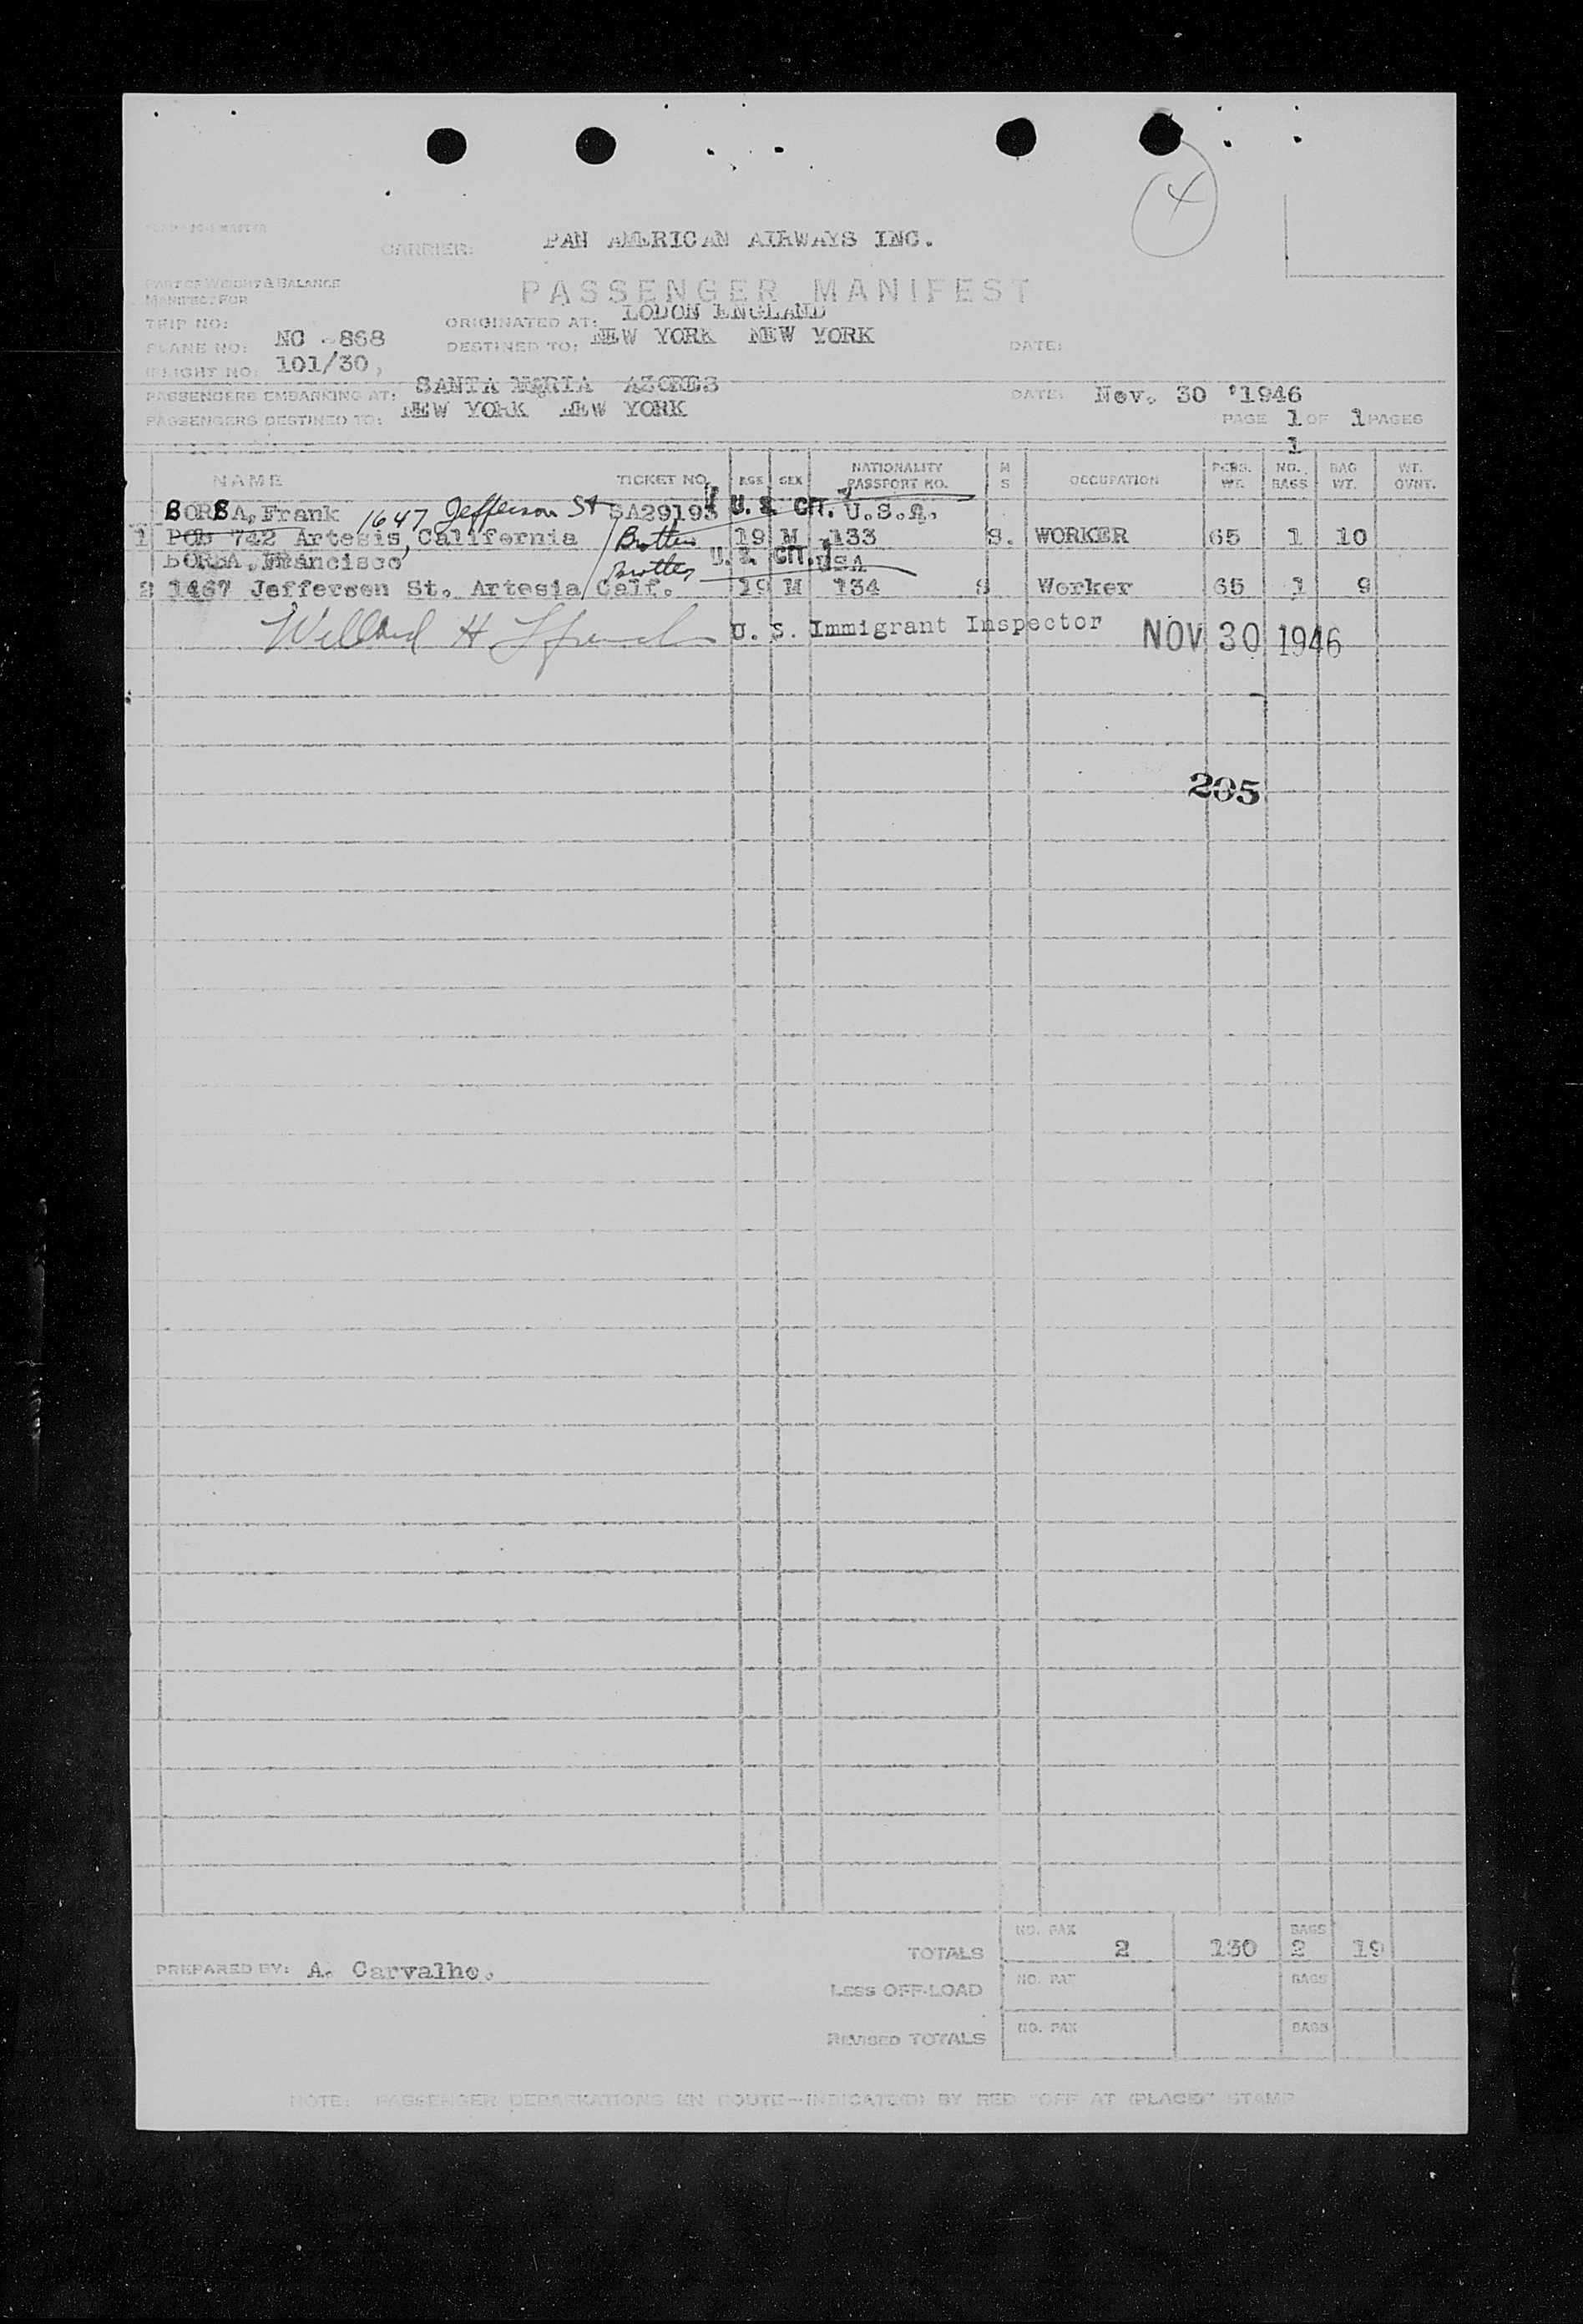 4
CARRIER: PAN AMERICAN AIRWAYS INC.
PART OF WEIGHT & BALANCE
MANIFEST FOR
PASSENGER MANIFEST
TRIP NO:
ORIGINATED AT: LODON ENGLAND
PLANE NO: NC -868
DESTINED TO: NEW YORK NEW YORK
DATE:
FLIGHT NO: 101/30,
PASSENGERS EMBARKING AT: SANTA MARIA AZORES
DATE: Nov. 30 '1946
PASSENGERS DESTINED TO: NEW YORK NEW YORK
PAGE 1 OF 1 PAGES
1
NAME TICKET NO. AGE SEX NATIONALITY PASSPORT NO. M S OCCUPATION PERS. WT. NO. BAGS BAG WT. WT. OVNT.
BORBA, Frank 1647 Jefferson St SA29193 U. S. CIT. U.S.A.
1 POB 742 Artesis, California Brother 19 M 133 S. WORKER 65 1 10
BORBA, FRancisco Brother U. S. CIT. USA
2 1467 Jeffersen St. Artesia Calf. 19 M 134 S Worker 65 1 9
Willard H U. S. Immigrant Inspector NOV 30 1946
205
TOTALS NO. PAX 2 130 BAGS 2 19
PREPARED BY: A. Carvalho.
LESS OFF-LOAD NO. PAX BAGS
REVISED TOTALS NO. PAX BAGS
NOTE: PASSENGER DEBARKATIONS EN ROUTE—INDICATE(D) BY RED "OFF AT (PLACE)" STAMP